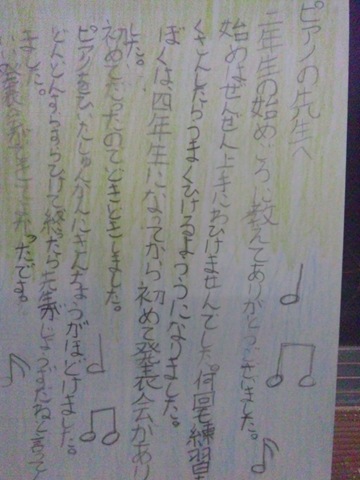 ピアノの先生へ
三年生の始めごろに教えてありがとうございました。
始めはぜんぜん上手にひけませんでした。何回も練習を
くさんしたらうまくひけるようになりました。
ぼくは、四年生になってから初めて発表会があり
ました。
初めてだったのでどきどきしました。
ピアノをひいたしゅんかんにきんちょうがほどけました。
どんどんすらすらひけて終ったら先生がじょうずだねと言って
ました。
発表会が
ったです。